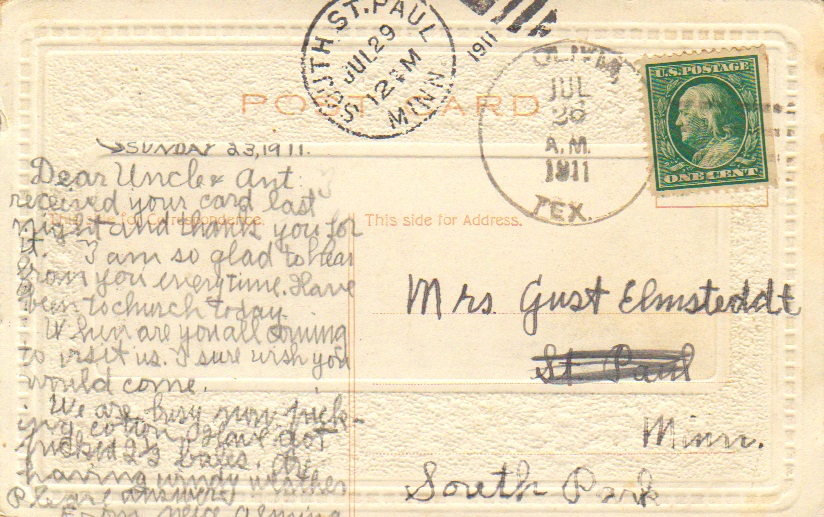 SOUTH ST. PAUL
JUL 29
12 M
1911
MINN.
OLIVIA
JUL
26
A.M.
1911
TEX.
U.S. POSTAGE
ONE CENT
POST CARD
SUNDAY 23, 1911.
Dear Uncle & Ant
received your card last
night and thanks you for
it. I am so glad to hear
from you everytime. Have
been to church today.
When are you all coming
to visit us. I sure wish you
would come.
We are busy now pick-
ing cotton. Have got
picked 2½ bales. Are
having windy wether
Please answer
From neice
This side for Correspondence.
This side for Address.
Mrs Gust Elmsteddt
St Paul
Minn.
South Park